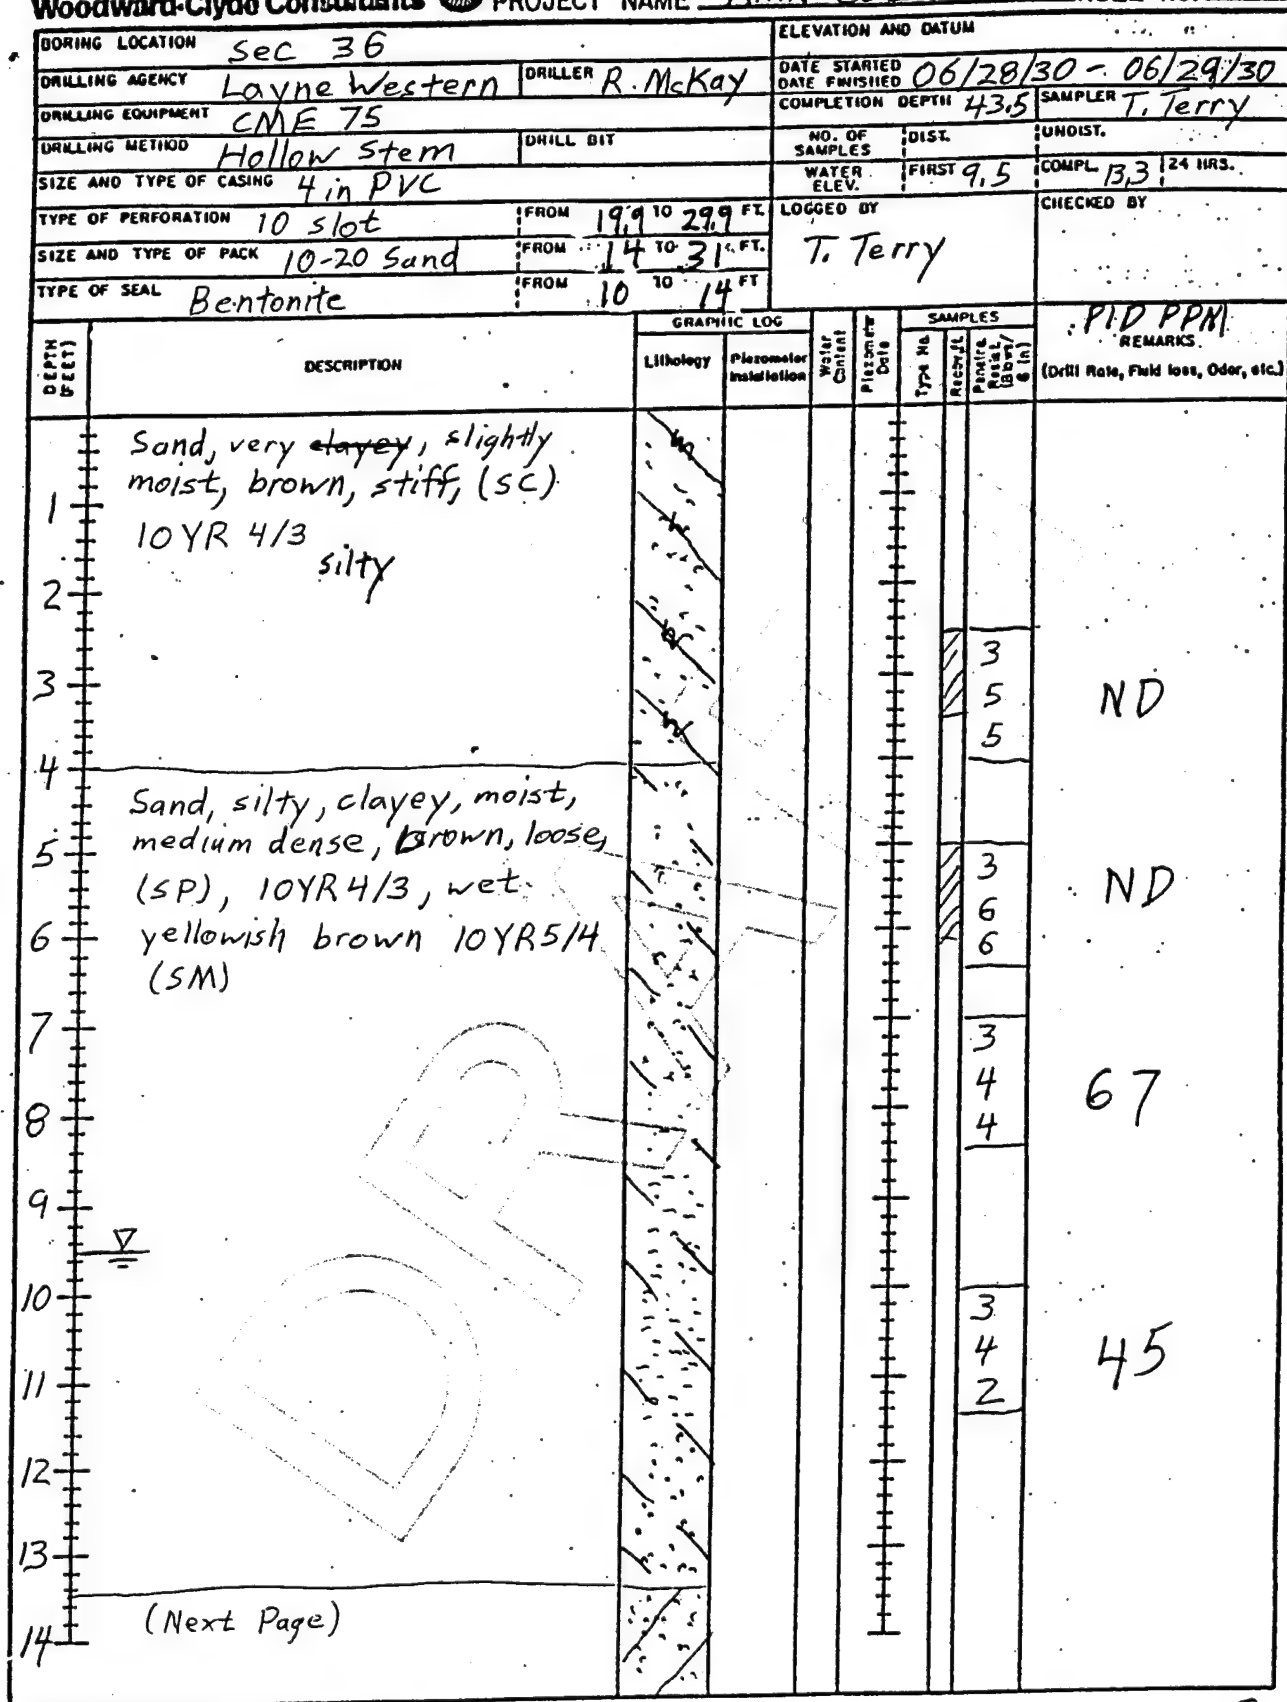 Woodward-Clyde Consultants PROJECT NAME
BORING LOCATION Sec 36
ELEVATION AND DATUM
DRILLING AGENCY Layne Western
DRILLER R. McKay
DATE STARTED
DATE FINISHED 06/28/30 - 06/29/30
DRILLING EQUIPMENT CME 75
COMPLETION DEPTH 43.5
SAMPLER T. Terry
DRILLING METHOD Hollow Stem
DRILL BIT
NO. OF SAMPLES
DIST.
UNDIST.
SIZE AND TYPE OF CASING 4 in PVC
WATER ELEV.
FIRST 9.5
COMPL. 13,3
24 HRS.
TYPE OF PERFORATION 10 slot
FROM 19.9 TO 29.9 FT.
LOGGED BY
T. Terry
CHECKED BY
SIZE AND TYPE OF PACK 10-20 Sand
FROM 14 TO 31 FT.
TYPE OF SEAL Bentonite
FROM 10 TO 14 FT
DEPTH (FEET)
DESCRIPTION
GRAPHIC LOG
Lithology
Piezometer Installation
Water Content
Piezometer Date
SAMPLES
Type No
Recov. ft.
Penetra. Resist. (Blows/ 6 in)
PID PPM
REMARKS
(Drill Rate, Fluid loss, Odor, etc.)
Sand, very clayey, slightly
moist, brown, stiff, (SC)
1
10 YR 4/3
silty
2
3
3
5
5
ND
4
Sand, silty, clayey, moist,
medium dense, brown, loose,
5
(SP), 10YR 4/3, wet
yellowish brown 10YR5/4
6
(SM)
3
6
6
ND
7
3
4
4
67
8
9
10
3
4
2
45
11
12
13
(Next Page)
14
DRAFT